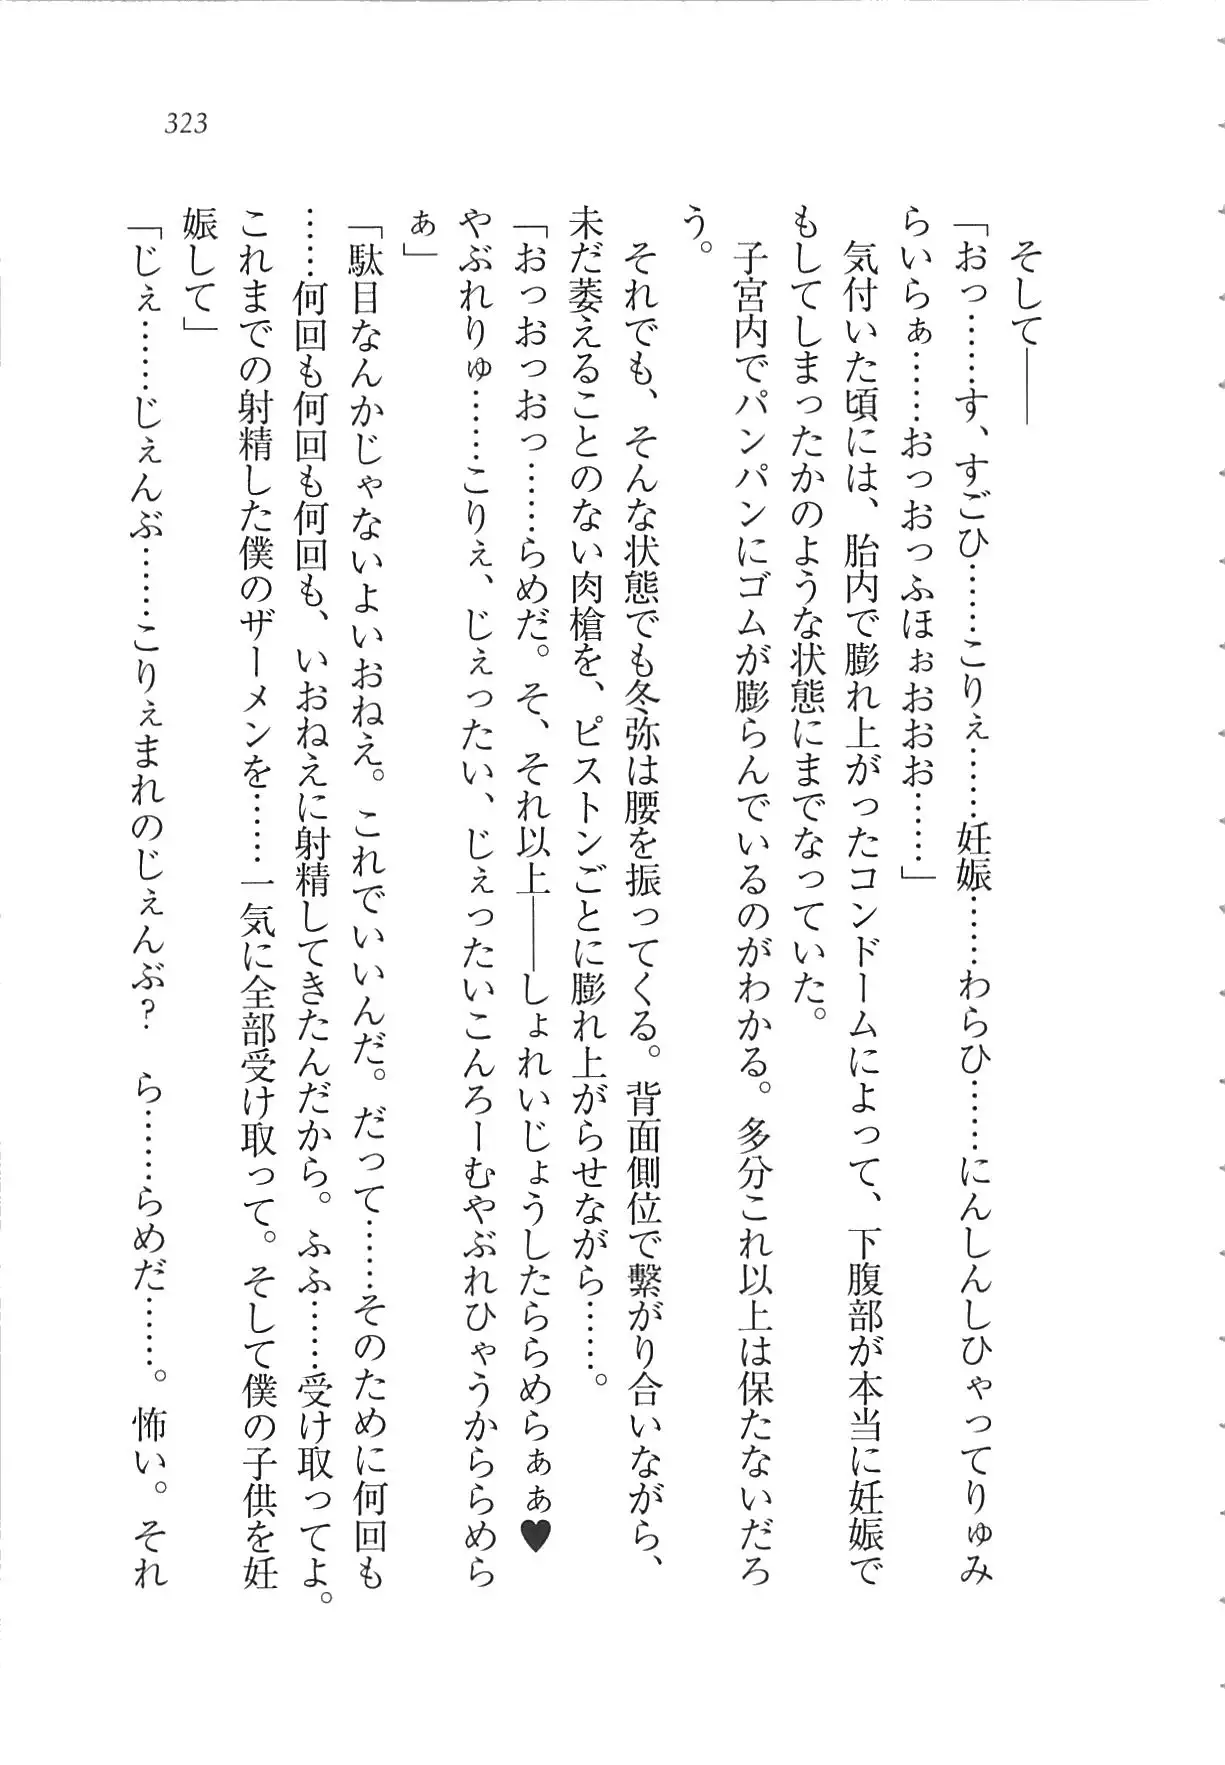 323
そして――
「おっ……す、すごひ……こりぇ……妊娠……わらひ……にんしんしひゃってりゅみ
らいらぁ……おっおっふほぉおおお……」
気付いた頃には、胎内で膨れ上がったコンドームによって、下腹部が本当に妊娠で
もしてしまったかのような状態にまでなっていた。
子宮内でパンパンにゴムが膨らんでいるのがわかる。多分これ以上は保たないだろ
う。
それでも、そんな状態でも冬弥は腰を振ってくる。背面側位で繋がり合いながら、
未だ萎えることのない肉槍を、ピストンごとに膨れ上がらせながら……。
「おっおっおっ……らめだ。そ、それ以上――しょれいじょうしたららめらぁぁ♥
やぶれりゅ……こりぇ、じぇったい、じぇったいこんろーむやぶれひゃうかららめら
ぁ」
「駄目なんかじゃないよいおねえ。これでいいんだ。だって……そのために何回も
……何回も何回も何回も、いおねえに射精してきたんだから。ふふ……受け取ってよ。
これまでの射精した僕のザーメンを……一気に全部受け取って。そして僕の子供を妊
娠して」
「じぇ……じぇんぶ……こりぇまれのじぇんぶ？　ら……らめだ……。怖い。それ